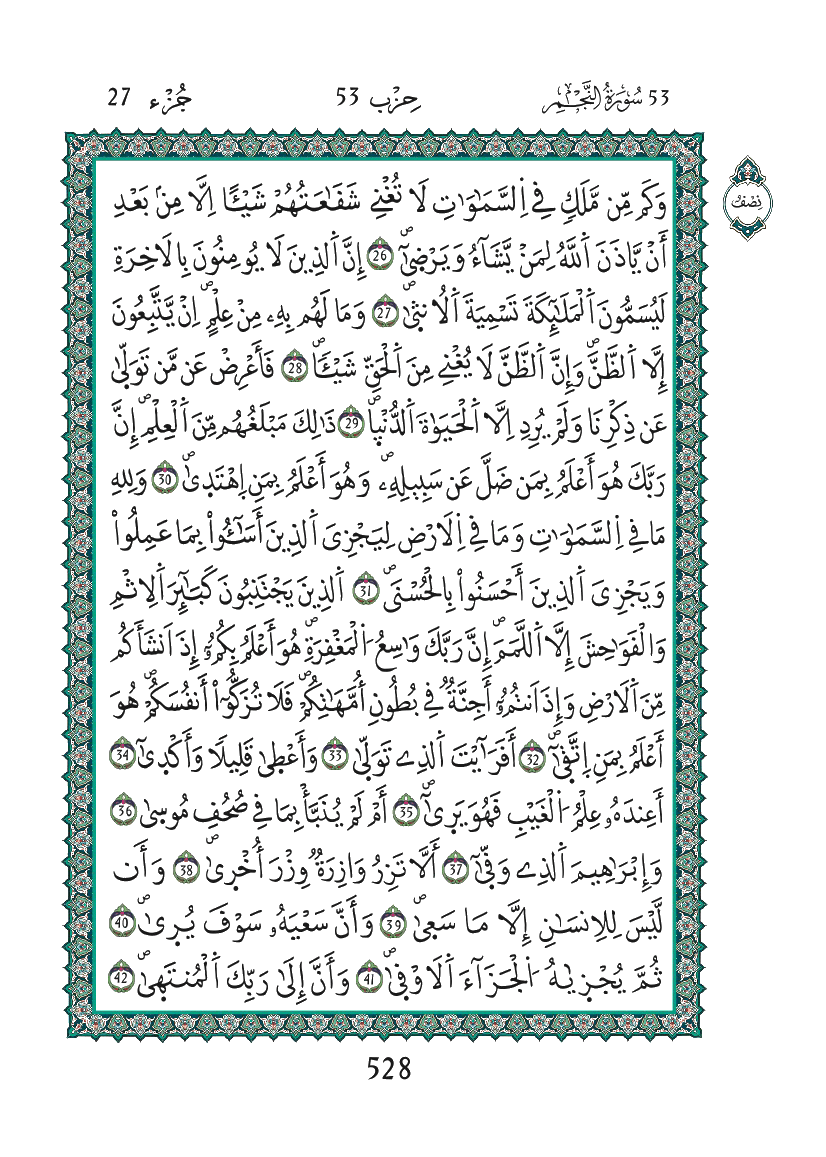 53 سُورَةُ النَّجْمِ
حِزْب 53
جُزْء 27
نِصْفُ
وَكَم مِّن مَّلَكٖ فِے اِ۬لسَّمَٰوَٰتِ لَا تُغْنِے شَفَٰعَتُهُمْ شَيْـًٔا اِلَّا مِنۢ بَعْدِ
أَنْ يَّاذَنَ اَ۬للَّهُ لِمَنْ يَّشَآءُ وَيَرْض۪ىٰٓۖ 26 إِنَّ اَ۬لذِينَ لَا يُومِنُونَ بِالَاخِرَةِ
لَيُسَمُّونَ اَ۬لْمَلَٰٓئِكَةَ تَسْمِيَةَ اَ۬لُانث۪ىٰۖ 27 وَمَا لَهُم بِهِۦ مِنْ عِلْمٍۖ اِنْ يَّتَّبِعُونَ
إِلَّا اَ۬لظَّنَّۖ وَإِنَّ اَ۬لظَّنَّ لَا يُغْنِے مِنَ اَ۬لْحَقِّ شَيْـٔٗاۖ 28 فَأَعْرِضْ عَن مَّن تَوَلّ۪ىٰ
عَن ذِكْرِنَا وَلَمْ يُرِدِ اِلَّا اَ۬لْحَيَوٰةَ اَ۬لدُّنْي۪اۖ 29 ذَٰلِكَ مَبْلَغُهُم مِّنَ اَ۬لْعِلْمِۖ إِنَّ
رَبَّكَ هُوَ أَعْلَمُ بِمَن ضَلَّ عَن سَبِيلِهِۦ وَهُوَ أَعْلَمُ بِمَنِ اِ۪هْتَد۪ىٰۖ 30 وَلِلهِ
مَا فِے اِ۬لسَّمَٰوَٰتِ وَمَا فِے اِ۬لَارْضِ لِيَجْزِيَ اَ۬لذِينَ أَسَٰٓـُٔواْ بِمَا عَمِلُواْ
وَيَجْزِيَ اَ۬لذِينَ أَحْسَنُواْ بِالْحُسْنَيۖ 31 اَ۬لذِينَ يَجْتَنِبُونَ كَبَٰٓئِرَ اَ۬لِاثْمِ
وَالْفَوَٰحِشَ إِلَّا اَ۬للَّمَمَۖ إِنَّ رَبَّكَ وَٰسِعُ اُ۬لْمَغْفِرَةِۖ هُوَ أَعْلَمُ بِكُمُۥٓ إِذَ اَنشَأَكُم
مِّنَ اَ۬لَارْضِ وَإِذَ اَنتُمُۥٓ أَجِنَّةٞ فِے بُطُونِ أُمَّهَٰتِكُمْۖ فَلَا تُزَكُّوٓاْ أَنفُسَكُمْۖ هُوَ
أَعْلَمُ بِمَنِ اِ۪تَّق۪ىٰٓۖ 32 أَفَرَٰٓيْتَ اَ۬لذِے تَوَلّ۪ىٰ 33 وَأَعْط۪ىٰ قَلِيلٗا وَأَكْد۪ىٰٓۖ 34
أَعِندَهُۥ عِلْمُ اُ۬لْغَيْبِ فَهُوَ يَر۪ىٰٓۖ 35 أَمْ لَمْ يُنَبَّأْ بِمَا فِے صُحُفِ مُوس۪ىٰ 36
وَإِبْرَٰهِيمَ اَ۬لذِے وَفّ۪ىٰٓ 37 أَلَّا تَزِرُ وَازِرَةٞ وِزْرَ أُخْر۪ىٰۖ 38 وَأَن
لَّيْسَ لِلِانسَٰنِ إِلَّا مَا سَع۪ىٰۖ 39 وَأَنَّ سَعْيَهُۥ سَوْفَ يُر۪ىٰۖ 40
ثُمَّ يُجْز۪يٰهُ اُ۬لْجَزَآءَ اَ۬لَاوْف۪ىٰۖ 41 وَأَنَّ إِلَىٰ رَبِّكَ اَ۬لْمُنتَه۪ىٰۖ 42
528